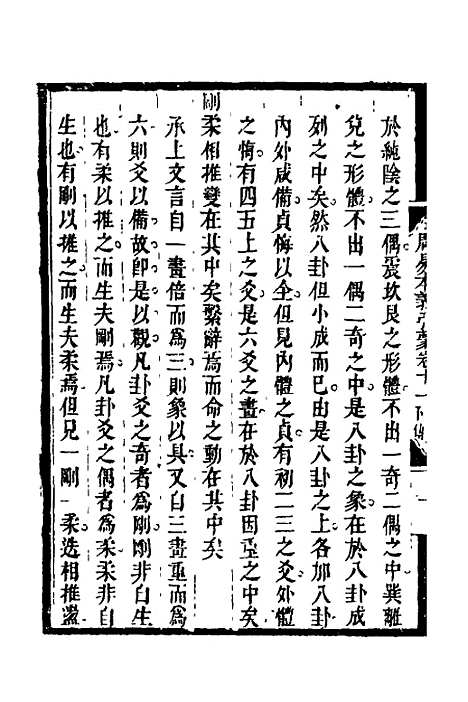 於純陰之三偶震坎艮之形體不出一奇二偶之中巽離
兌之形體不出一偶二奇之中是八卦之象在於八卦成
列之中矣然八卦但小成而已由是八卦之上各加八卦
內外咸備貞悔以全但見內體之貞有初二三之爻外體
之悔有四五上之爻是六爻之畫在於八卦因重之中矣
剛柔相推變在其中矣繫辭焉而命之動在其中矣
承上文言自一畫倍而為三則象以具又自三畫重而為
六則爻以備故即是以觀凡卦爻之奇者為剛剛非自生
也有柔以推之而生夫剛焉凡卦爻之偶者為柔柔非自
生也有剛以推之而生夫柔焉但見一剛一柔迭相推盪